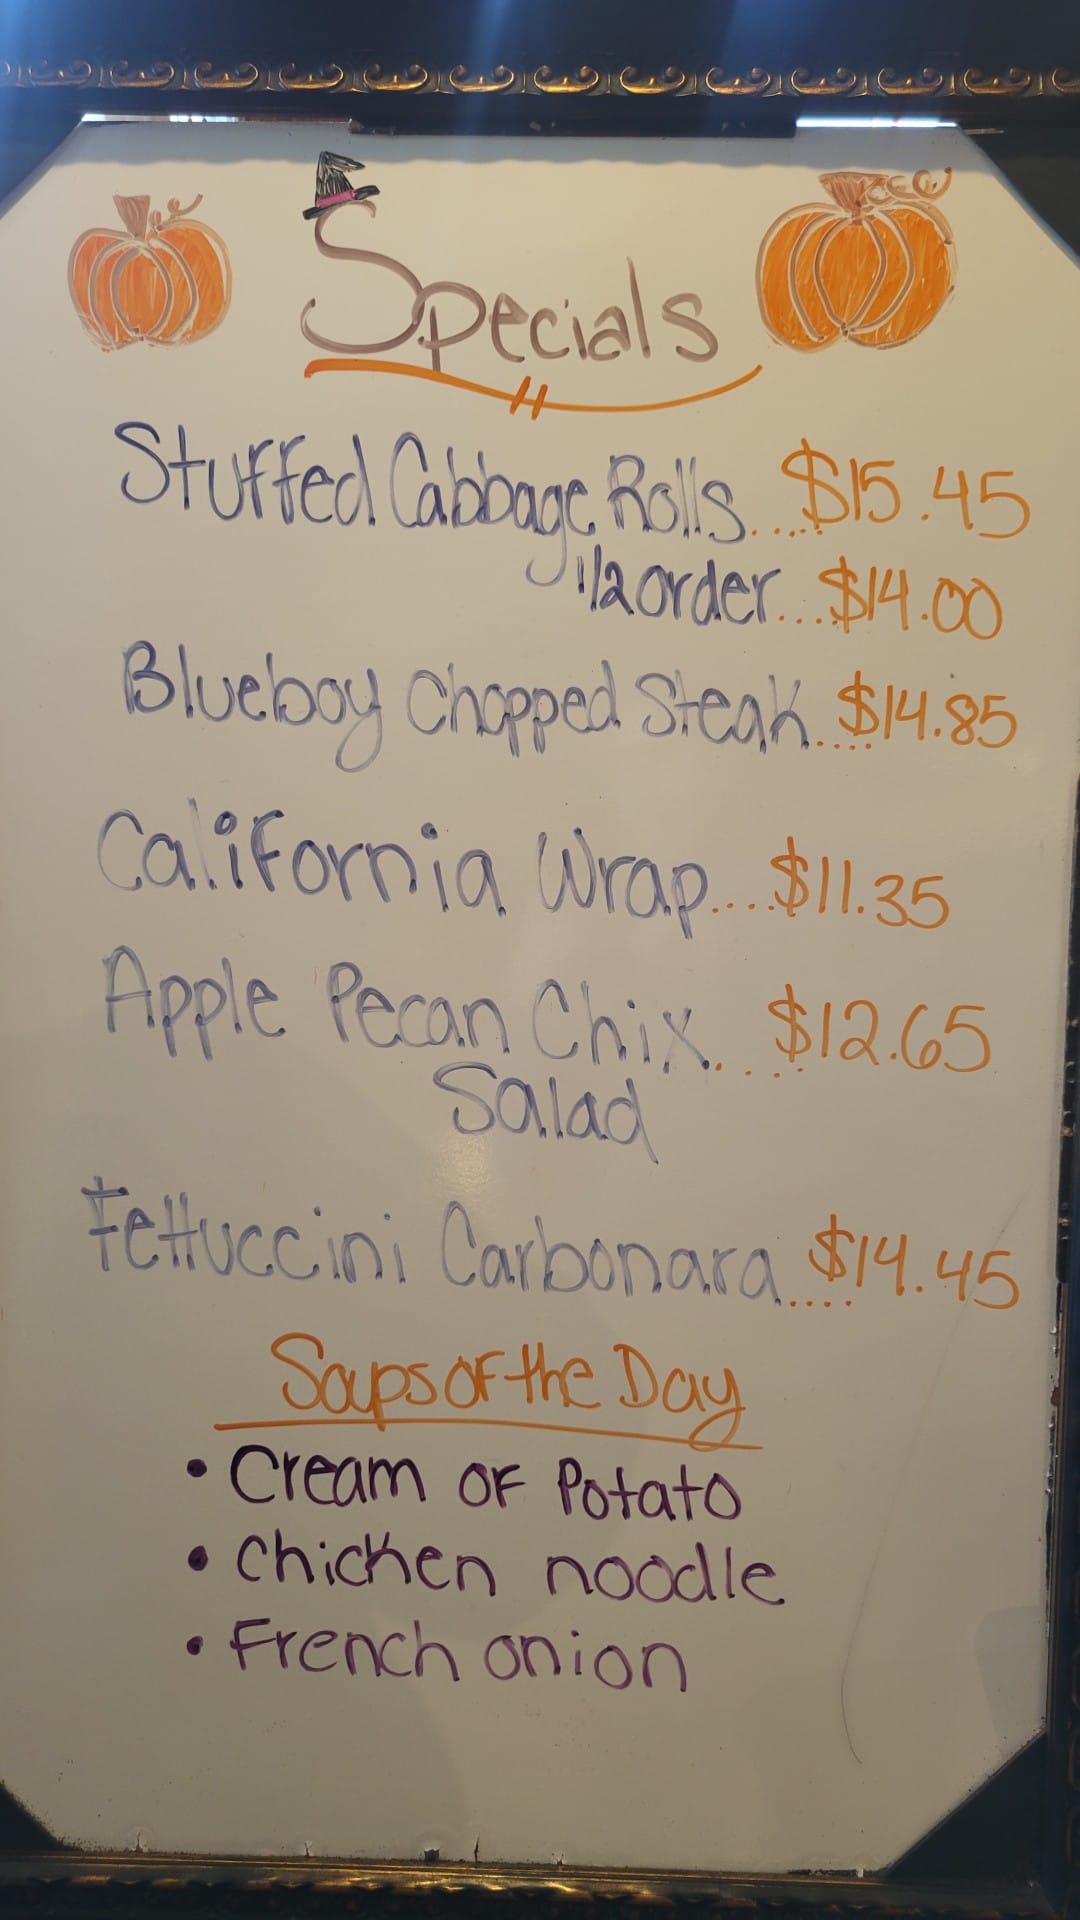 Specials
Stuffed Cabbage Rolls....$15.45
1/2 order....$14.00
Blueboy Chopped Steak....$14.85
California Wrap....$11.35
Apple Pecan Chix....$12.65
Salad
Fettuccini Carbonara....$14.45
Soups of the Day
• Cream of Potato
• Chicken noodle
• French onion